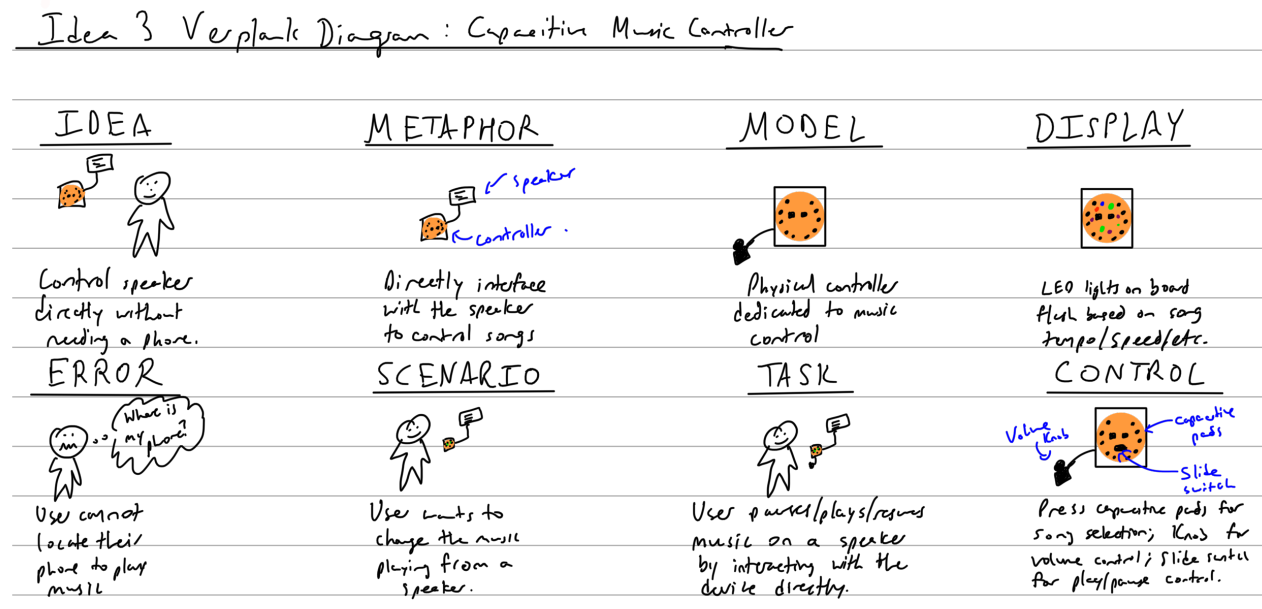 Idea 3 Verplank Diagram: Capacitive Music Controller
IDEA
Control speaker
directly without
needing a phone.
METAPHOR
speaker
controller.
Directly interface
with the speaker
to control songs
MODEL
Physical controller
dedicated to music
control
DISPLAY
LED lights on board
flash based on song
tempo/speed/etc.
ERROR
Where is
my phone?
User cannot
locate their
phone to play
music
SCENARIO
User wants to
change the music
playing from a
speaker.
TASK
User pauses/plays/resumes
music on a speaker
by interacting with the
device directly.
CONTROL
Volume
Knob
capacitive
pads
Slide
switch
Press capacitive pads for
song selection; Knob for
volume control; Slide switch
for play/pause control.